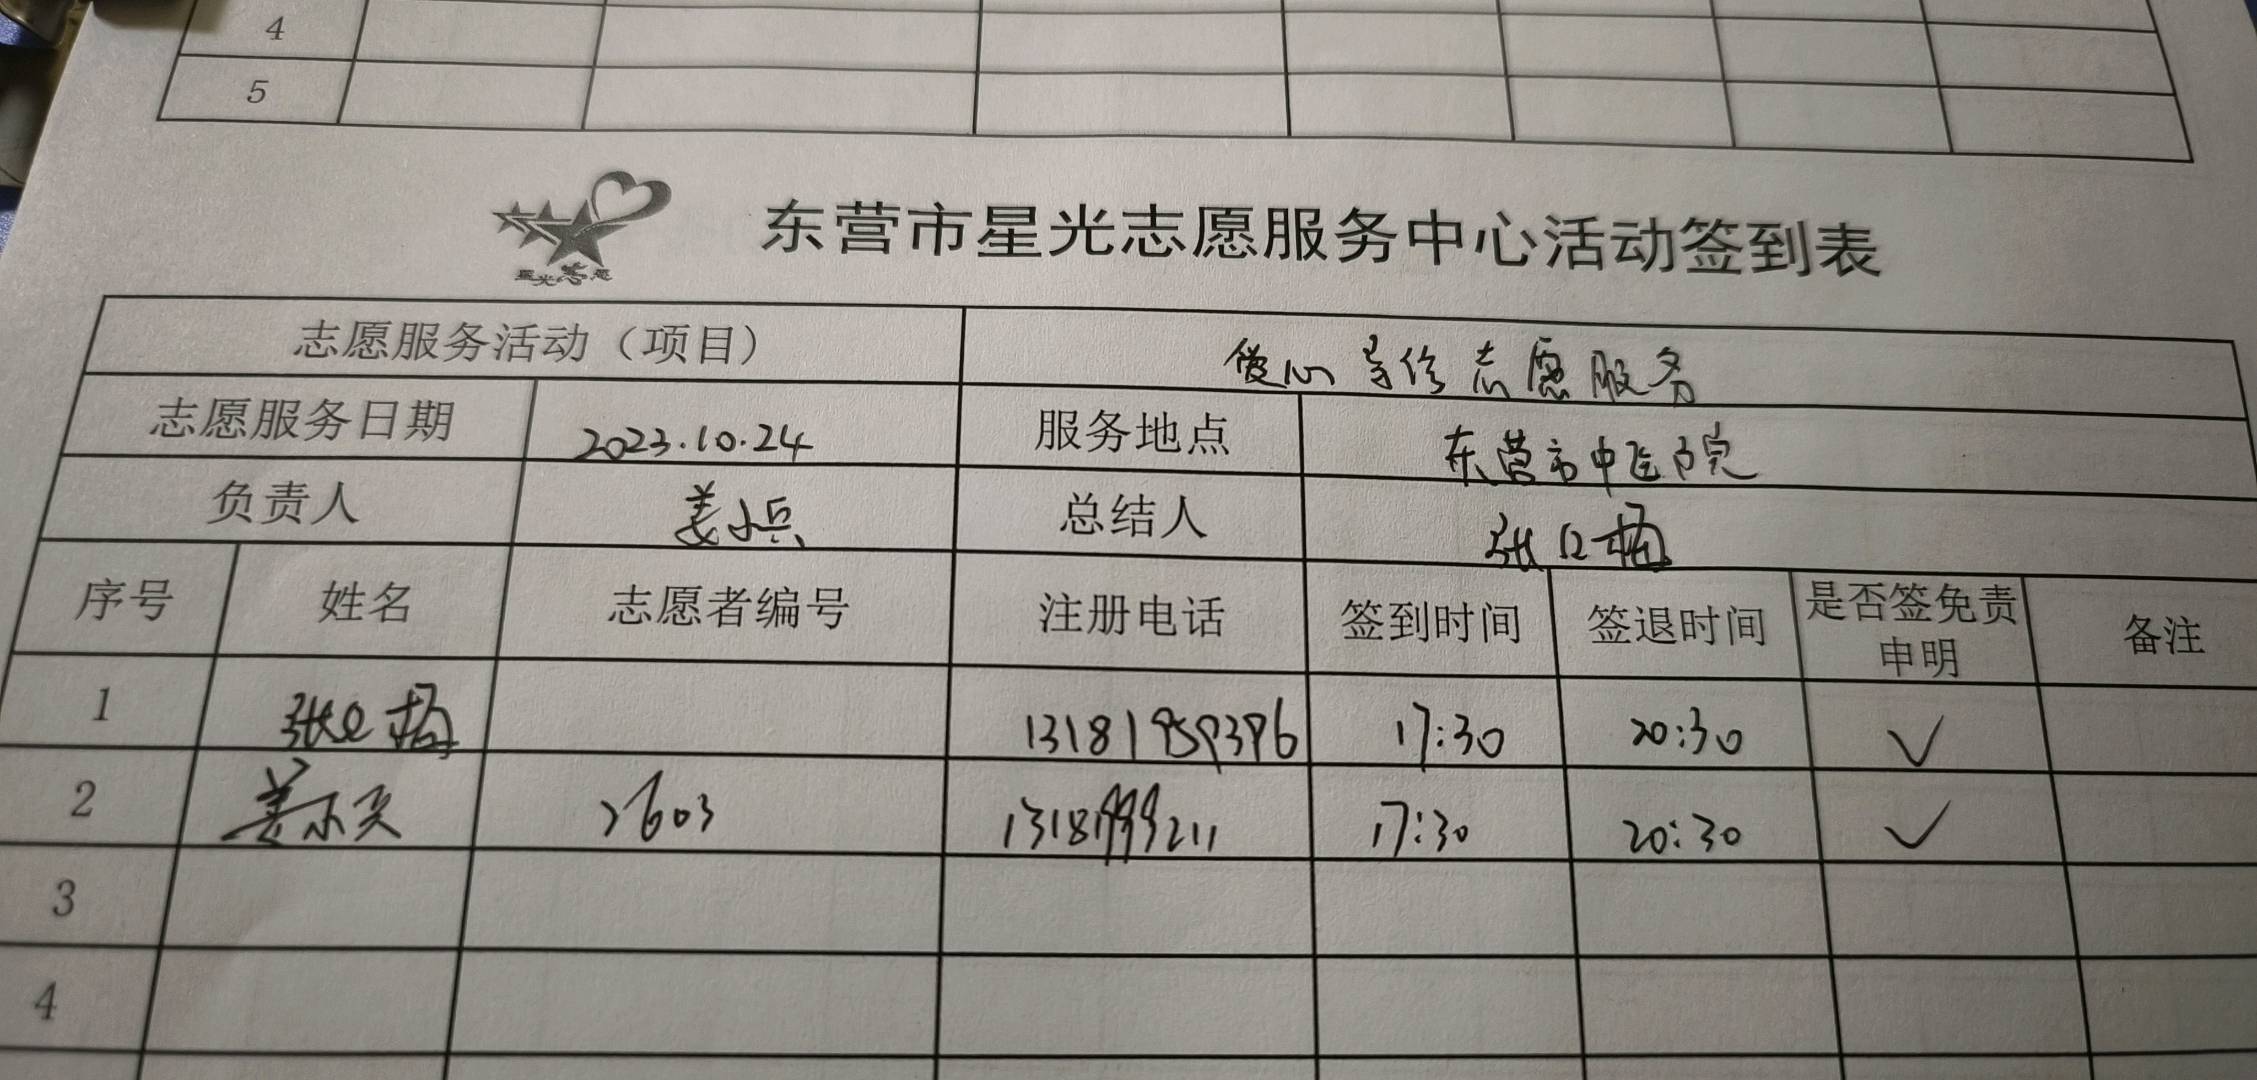 4
5
星光志愿
东营市星光志愿服务中心活动签到表
志愿服务活动（项目） 爱心导诊志愿服务
志愿服务日期 2023.10.24 服务地点 东营市中医院
负责人 姜小兵 总结人 张
序号 姓名 志愿者编号 注册电话 签到时间 签退时间 是否签免责申明 备注
1 张 13181959396 17:30 20:30 ✓
2 姜 2603 17:30 20:30 ✓
3
4